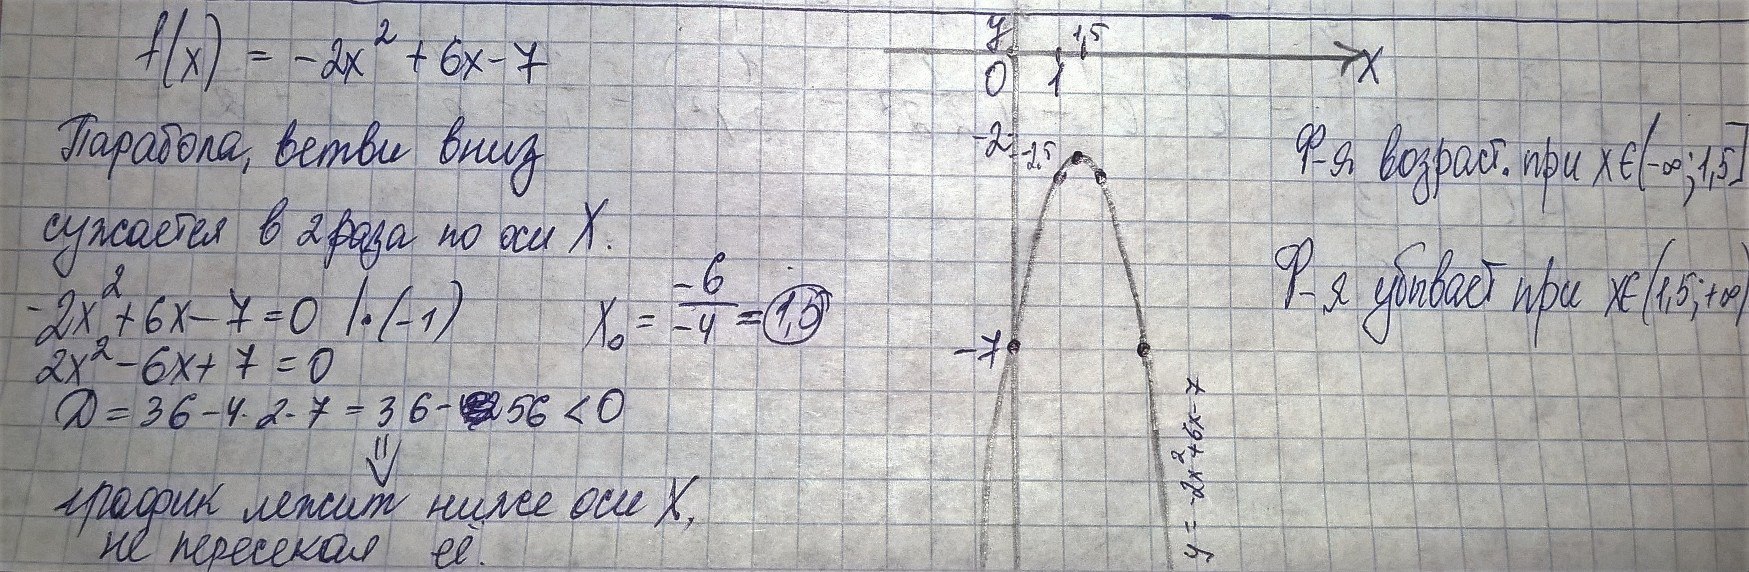 f(x) = -2x² + 6x - 7
Парабола, ветви вниз
сужается в 2 раза по оси X.
-2x² + 6x - 7 = 0 | · (-1)
2x² - 6x + 7 = 0
D = 36 - 4 · 2 · 7 = 36 - 56 < 0
⇓
график лежит ниже оси X,
не пересекая её.
x₀ = -6/-4 = 1,5
y
1,5
0
1
X
-2
-2,5
-7
y = -2x² + 6x - 7
Ф-я возраст. при x∈(-∞; 1,5]
Ф-я убывает при x∈(1,5; +∞)